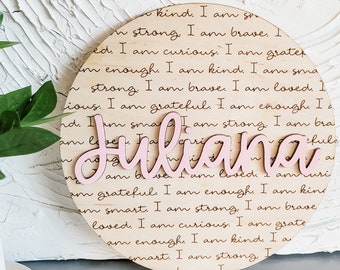 am kind. I am
strong. I am brave. I
am curious. I am grateful
am enough. I am kind. I am smart.
strong. I am brave. I am loved.
curious. I am grateful. I am
Juliana
I am kind. I am
am brave. I am loved. I
grateful. I am enough. I am kind.
smart. I am strong. I am brave.
I am curious. I am grateful.
am enough. I am kind. I am
smart. I am strong. I am